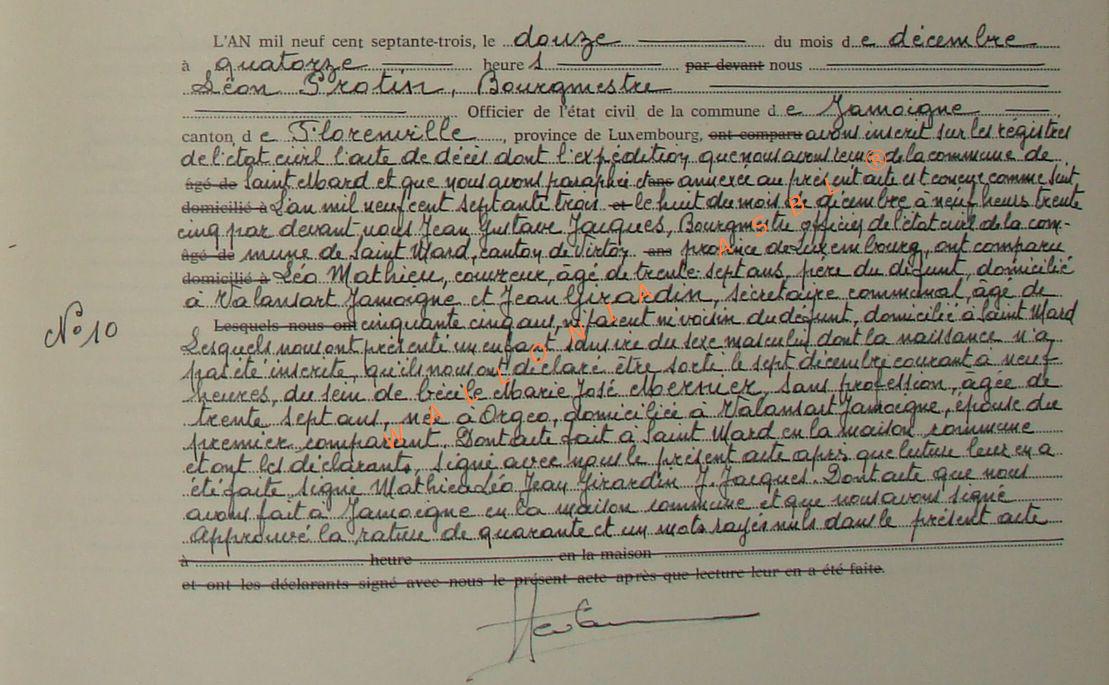 L'AN mil neuf cent septante-trois, le douze du mois de décembre
à quatorze heures par devant nous
Léon Protin, Bourgmestre
Officier de l'état civil de la commune de Jamoigne
canton de Florenville, province de Luxembourg, ont comparu avons inscrit sur les régistres
de l'état civil l'acte de décès dont l'expédition que nous avons reçue de la commune de
âgé de Saint Mard et que nous avons paraphée ans annexée au présent acte est conçue comme suit
domicilié à L'an mil neuf cent septante trois et le huit du mois de décembre à neuf heures trente
cinq par devant nous Jean Gustave Jacques, Bourgmestre officier de l'état civil de la com-
âgé de mune de Saint Mard, canton de Virton ans province de Luxembourg, ont comparu
domicilié à Léo Mathieu, couvreur, âgé de trente-sept ans, père du défunt, domicilié
à Valansart Jamoigne et Jean Girardin, secrétaire communal, âgé de
N° 10
Lesquels nous ont cinquante cinq ans, ni parent ni voisin du défunt, domicilié à Saint Mard
Lesquels nous ont présenté un enfant sans vie du sexe masculin dont la naissance n'a
pas été inscrite, qu'ils nous ont déclaré être sorti le sept décembre courant à neuf
heures, du sein de Cécile Marie José Mernier, sans profession, âgée de
trente sept ans, née à Orgeo, domiciliée à Valansart Jamoigne, épouse du
premier comparant. Dont acte fait à Saint Mard en la maison commune
et ont les déclarants, signé avec nous le présent acte après que lecture leur en a
été faite. signé Mathieu Léo Jean Girardin J. Jacques. Dont acte que nous
avons fait à Jamoigne en la maison commune et que nous avons signé
Approuvé la rature de quarante et un mots rayés nuls dans le présent acte
à heure en la maison
et ont les déclarants signé avec nous le présent acte après que lecture leur en a été faite.
WALLONIA ASBL ®